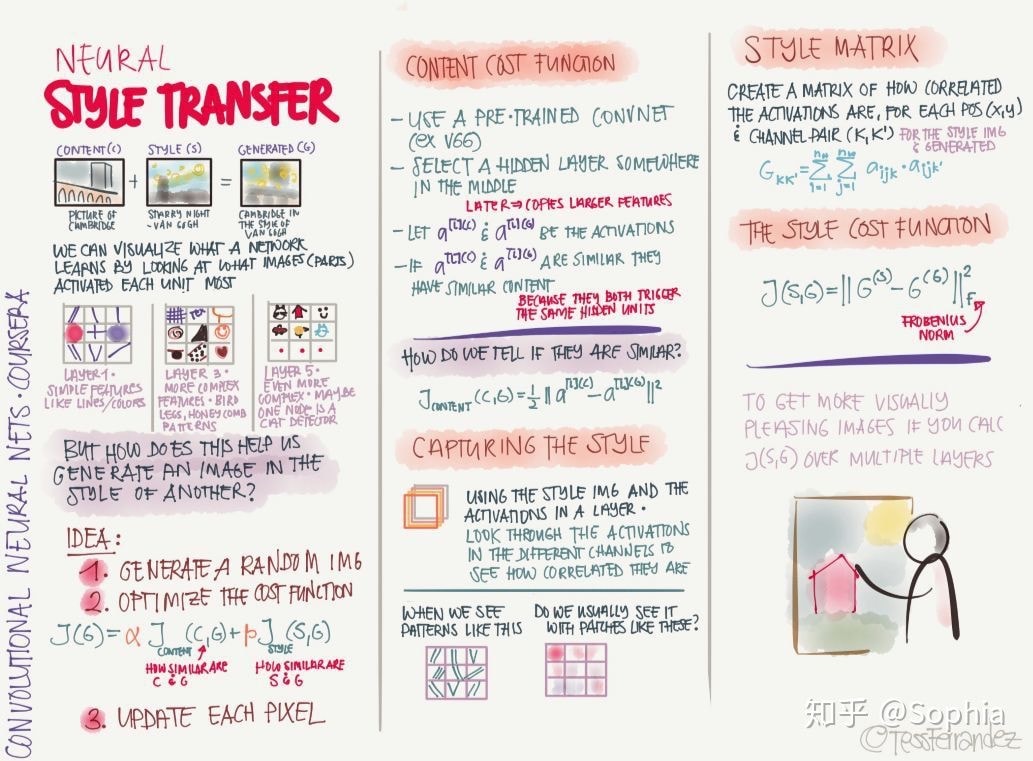 CONVOLUTIONAL NEURAL NETS · COURSERA
NEURAL
STYLE TRANSFER
CONTENT(C) STYLE (S) GENERATED (G)
+ =
PICTURE OF
CAMBRIDGE
STARRY NIGHT
- VAN GOGH
CAMBRIDGE IN
THE STYLE OF
VAN GOGH
WE CAN VISUALIZE WHAT A NETWORK
LEARNS BY LOOKING AT WHAT IMAGES (PARTS)
ACTIVATED EACH UNIT MOST
LAYER 1 ·
SIMPLE FEATURES
LIKE LINES/COLORS
LAYER 3 ·
MORE COMPLEX
FEATURES · BIRD
LEGS, HONEYCOMB
PATTERNS
LAYER 5 ·
EVEN MORE
COMPLEX · MAYBE
ONE NODE IS A
CAT DETECTOR
BUT HOW DOES THIS HELP US
GENERATE AN IMAGE IN THE
STYLE OF ANOTHER?
IDEA:
1. GENERATE A RANDOM IMG
2. OPTIMIZE THE COST FUNCTION
J(G) = α J_CONTENT (C,G) + β J_STYLE (S,G)
HOW SIMILAR ARE
C & G
HOW SIMILAR ARE
S & G
3. UPDATE EACH PIXEL
CONTENT COST FUNCTION
- USE A PRE-TRAINED CONVNET
(EX VGG)
- SELECT A HIDDEN LAYER SOMEWHERE
IN THE MIDDLE
LATER ⇒ COPIES LARGER FEATURES
- LET a^[l](C) & a^[l](G) BE THE ACTIVATIONS
- IF a^[l](C) & a^[l](G) ARE SIMILAR THEY
HAVE SIMILAR CONTENT
BECAUSE THEY BOTH TRIGGER
THE SAME HIDDEN UNITS
HOW DO WE TELL IF THEY ARE SIMILAR?
J_CONTENT (C,G) = 1/2 || a^[l](C) - a^[l](G) ||²
CAPTURING THE STYLE
USING THE STYLE IMG AND THE
ACTIVATIONS IN A LAYER ·
LOOK THROUGH THE ACTIVATIONS
IN THE DIFFERENT CHANNELS TO
SEE HOW CORRELATED THEY ARE
WHEN WE SEE
PATTERNS LIKE THIS
DO WE USUALLY SEE IT
WITH PATCHES LIKE THESE?
STYLE MATRIX
CREATE A MATRIX OF HOW CORRELATED
THE ACTIVATIONS ARE, FOR EACH POS (X,Y)
& CHANNEL-PAIR (K,K') FOR THE STYLE IMG
& GENERATED
G_KK' = Σ_{i=1}^{n_H} Σ_{j=1}^{n_W} a_ijk · a_ijk'
THE STYLE COST FUNCTION
J(S,G) = || G^(S) - G^(G) ||²_F
FROBENIUS
NORM
TO GET MORE VISUALLY
PLEASING IMAGES IF YOU CALC
J(S,G) OVER MULTIPLE LAYERS
知乎 @Sophia
@TessFerrandez